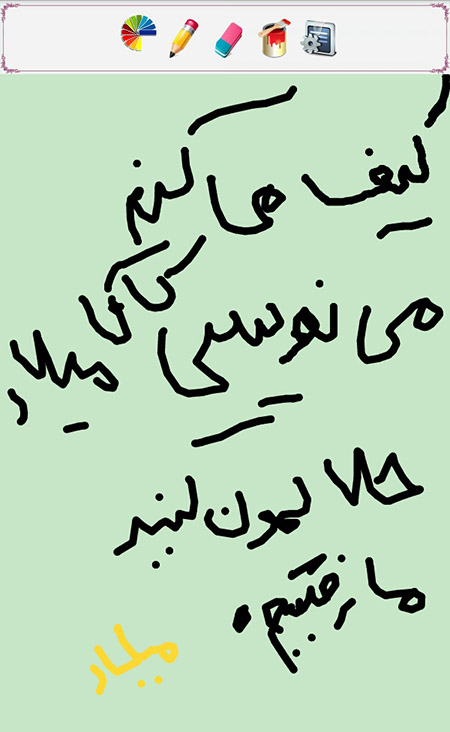 کیف می کنم
می نویسی کاکا میلاد
حالا کنید
ما رفتیم.
میلاد